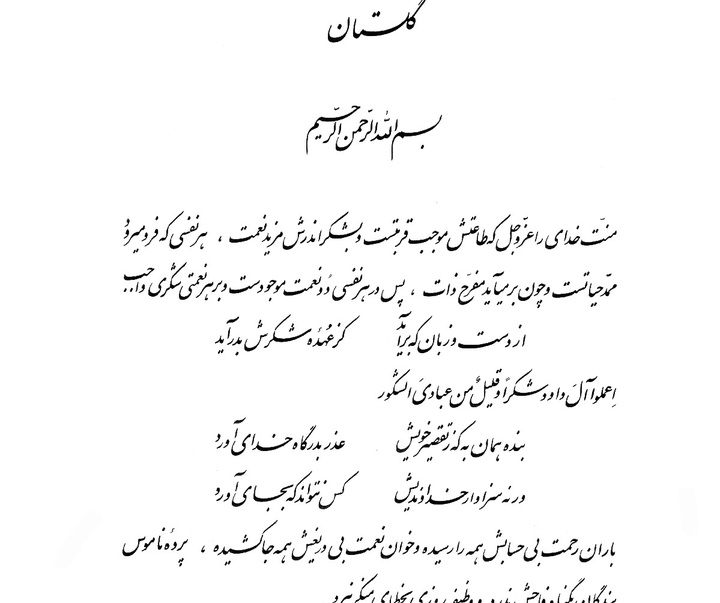 گلستان
بسم الله الرحمن الرحیم
منّت خدای را عزّوجل که طاعتش موجب قربتست و بشکر اندرش مزید نعمت ، هر نفسی که فرو میرود
ممدّ حیاتست و چون بر میآید مفرّح ذات ، پس در هر نفسی دو نعمت موجودست و بر هر نعمتی شکری واجب
از دست و زبان که برآید کز عهدهٔ شکرش بدر آید
اِعملوا آلَ داود شکراً و قلیلٌ من عبادیَ الشکور
بنده همان به که ز تقصیر خویش عذر بدرگاه خدای آورد
ورنه سزاوار خداوندیش کس نتواند که بجای آورد
باران رحمت بی حسابش همه را رسیده و خوان نعمت بی دریغش همه جا کشیده ، پردهٔ ناموس
بندگان بگناه فاحش ندرد و وظیفه روزی بخطای منکر نبرد